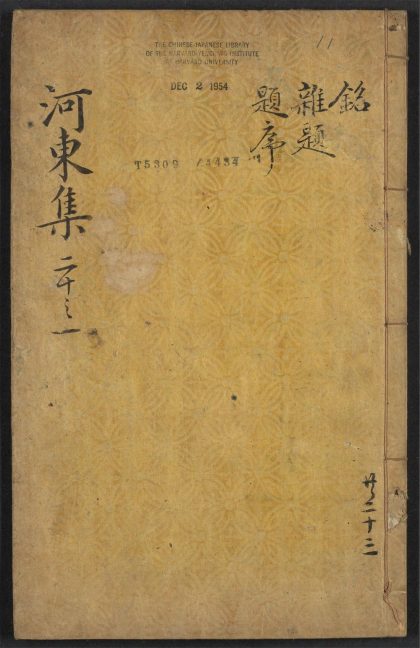 THE CHINESE-JAPANESE LIBRARY
OF THE HARVARD-YENCHING INSTITUTE
AT HARVARD UNIVERSITY
DEC 2 1954
11
T5309 /4434
銘
雜題
題序
河東集 二十之一